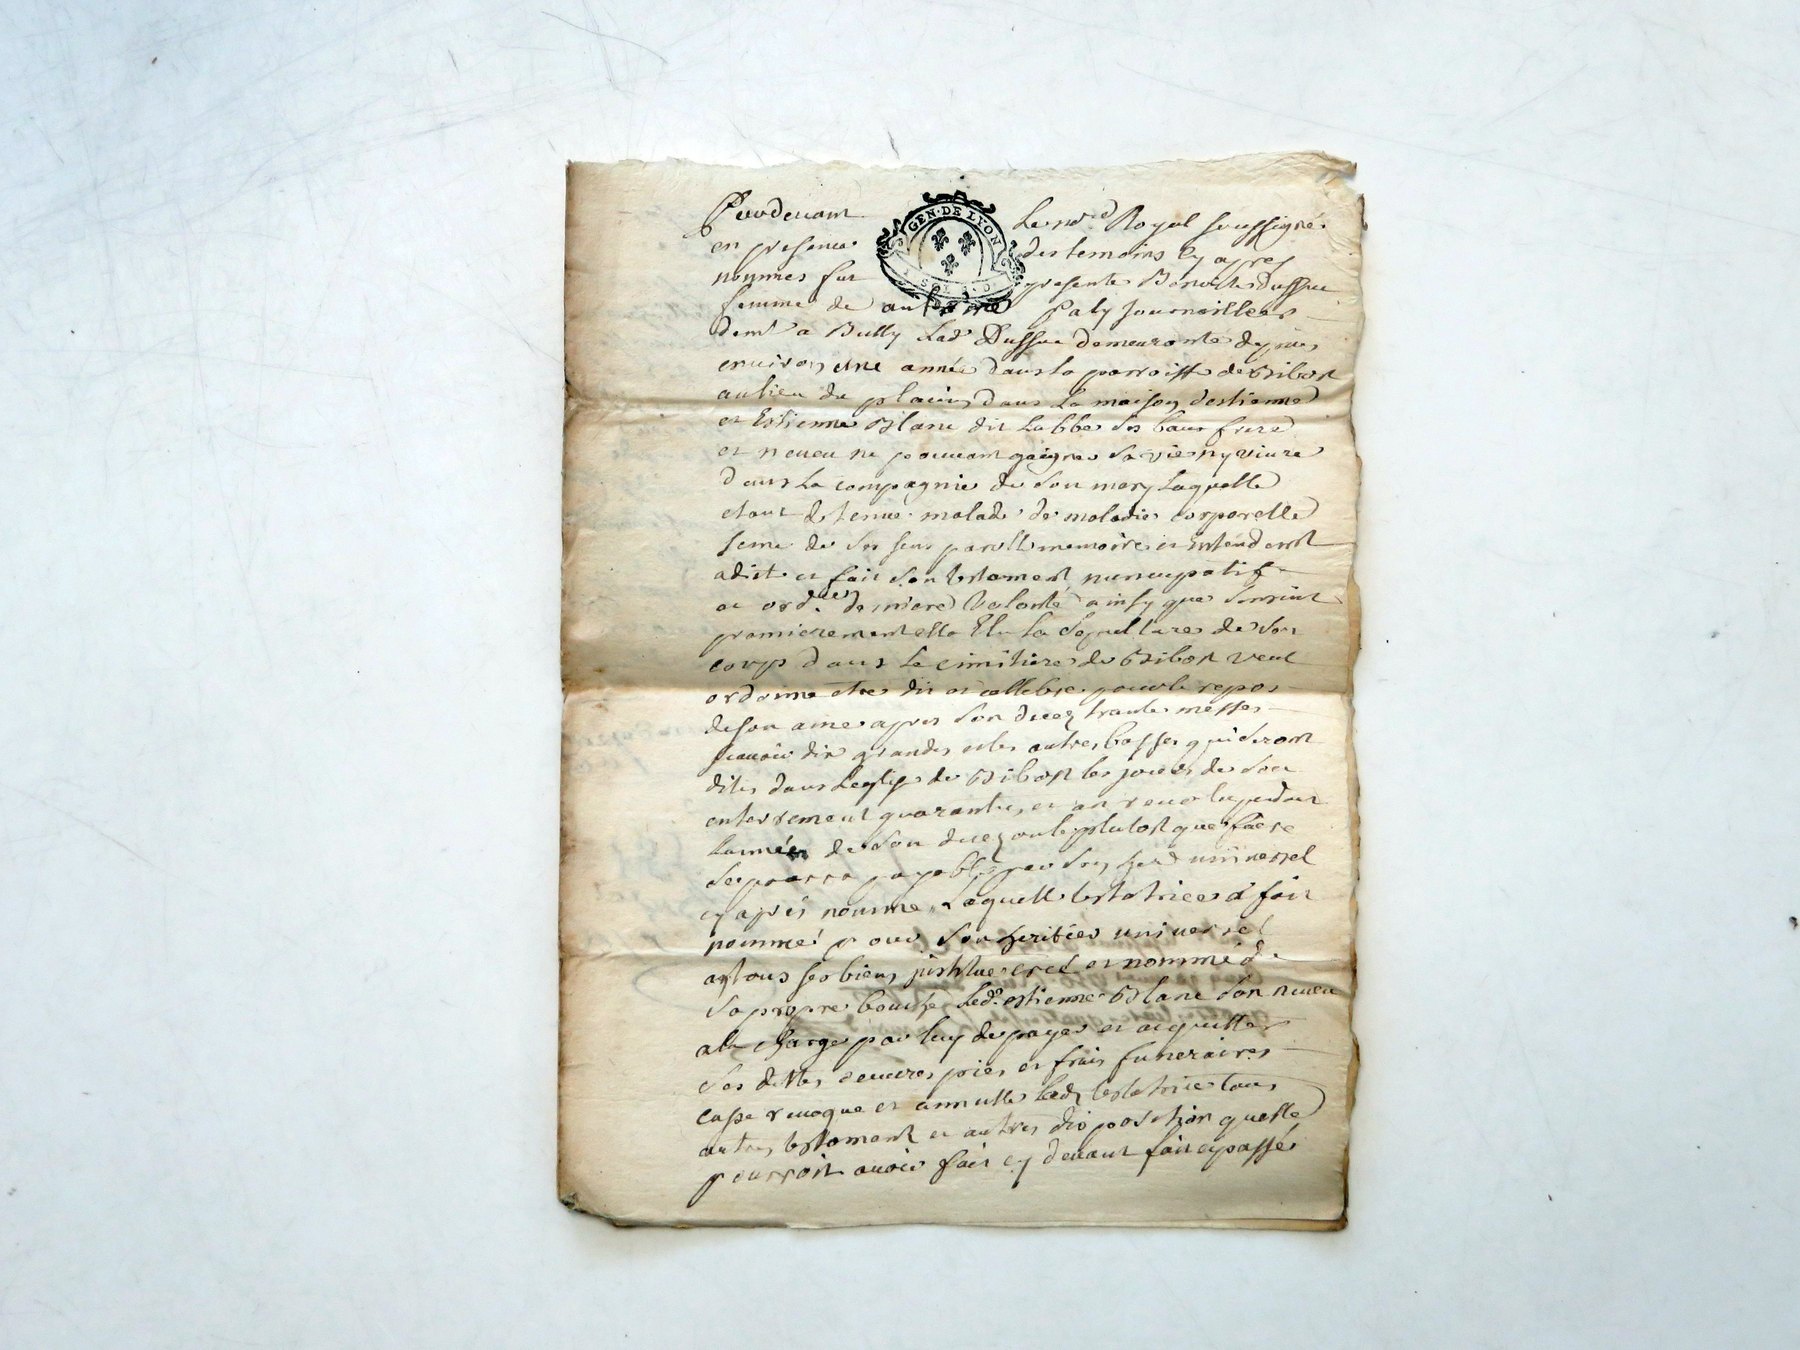 GEN·DE LYON
Pardevant Le no.re Royal soussigné
en presence des temoins cy apres
nommes fut presente Benoite Dussue
femme de antoine paly Journaillier
dem.t a Bully Lad. Dussue demeurante depuis
environ une année dans la parroisse de
au lieu du plain dans la maison destienne
et Estienne Blanc dit Labbe ses beau frere
et neveu ne pouvant gaigner sa vie ny vivre
dans la compagnie de son mary Laquelle
etant detenue malade de maladie corporelle
seine de ses sens parolle memoire et Entendement
a dict et fait son testament nuncupatif
et ord.ce derniere volonté ainsy que sensuit
premierement elle Elu la sepulture de son
corps dans le cimitiere de veut
ordonne etre dit et cellebre pour le repos
de son ame apres son decez trante messes
scavoir dix grandes et les autres basses qui seront
dites dans leglise de les jours de son
enterrement quarantes, et au pendant
Lannée de son decez ou le plutost que faire
se pourra payable par son her. universel
cy apres nomme, Laquelle testatrice a fait
nommé pour son heritier universel
a tous ses biens institue creé et nommé de
sa propre bouche led. estienne Blanc son neveu
a la charge par luy de payer et acquitter
ses dettes oeuvres pies et frais funeraires
casse revoque et annulle lad. testatrice tous
autres testament et autres disposition quelle
pourroit avoir fait cy devant fait et passé